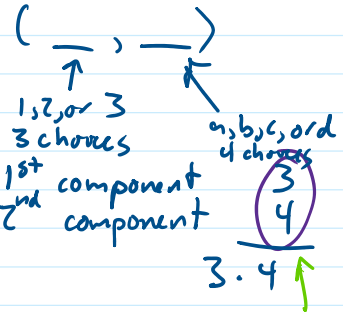 ( __ , __ )
1, 2, or 3
3 choices
a, b, c, or d
4 choices
1st component 3
2nd component 4
3 · 4